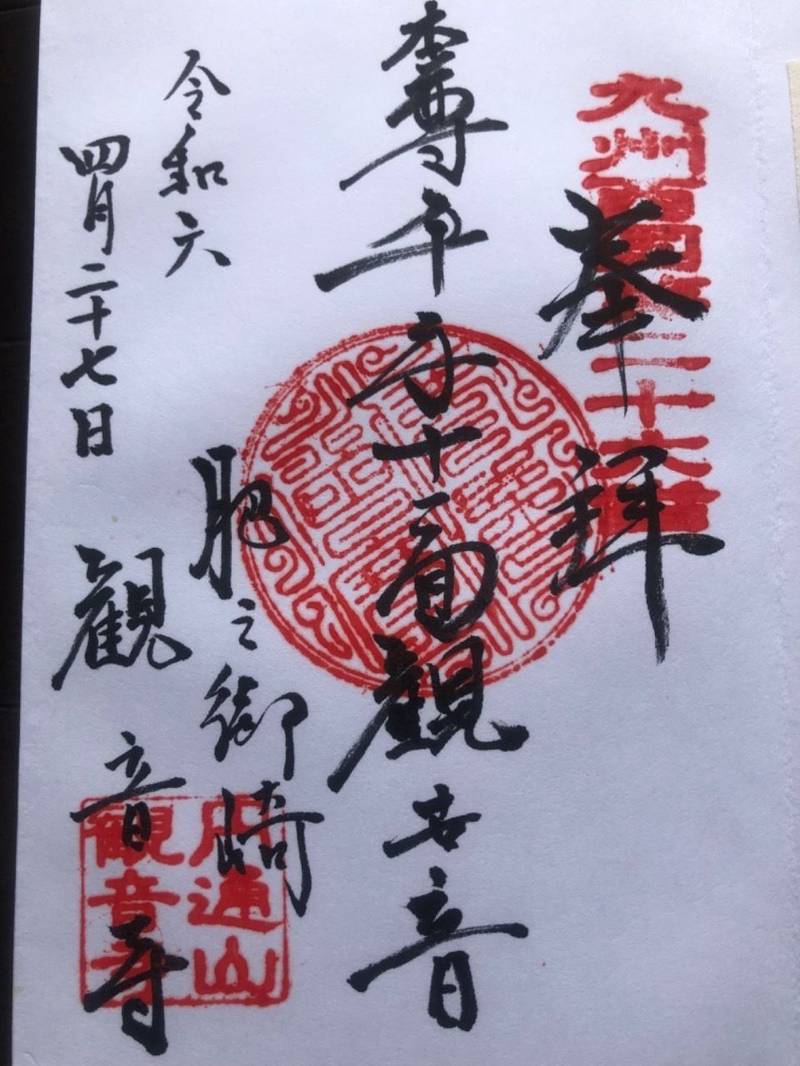 九州西国第二十六番
奉拝
本尊千手十一面観世音
肥之御崎
令和六
四月二十七日
観音寺
円通山
観音寺